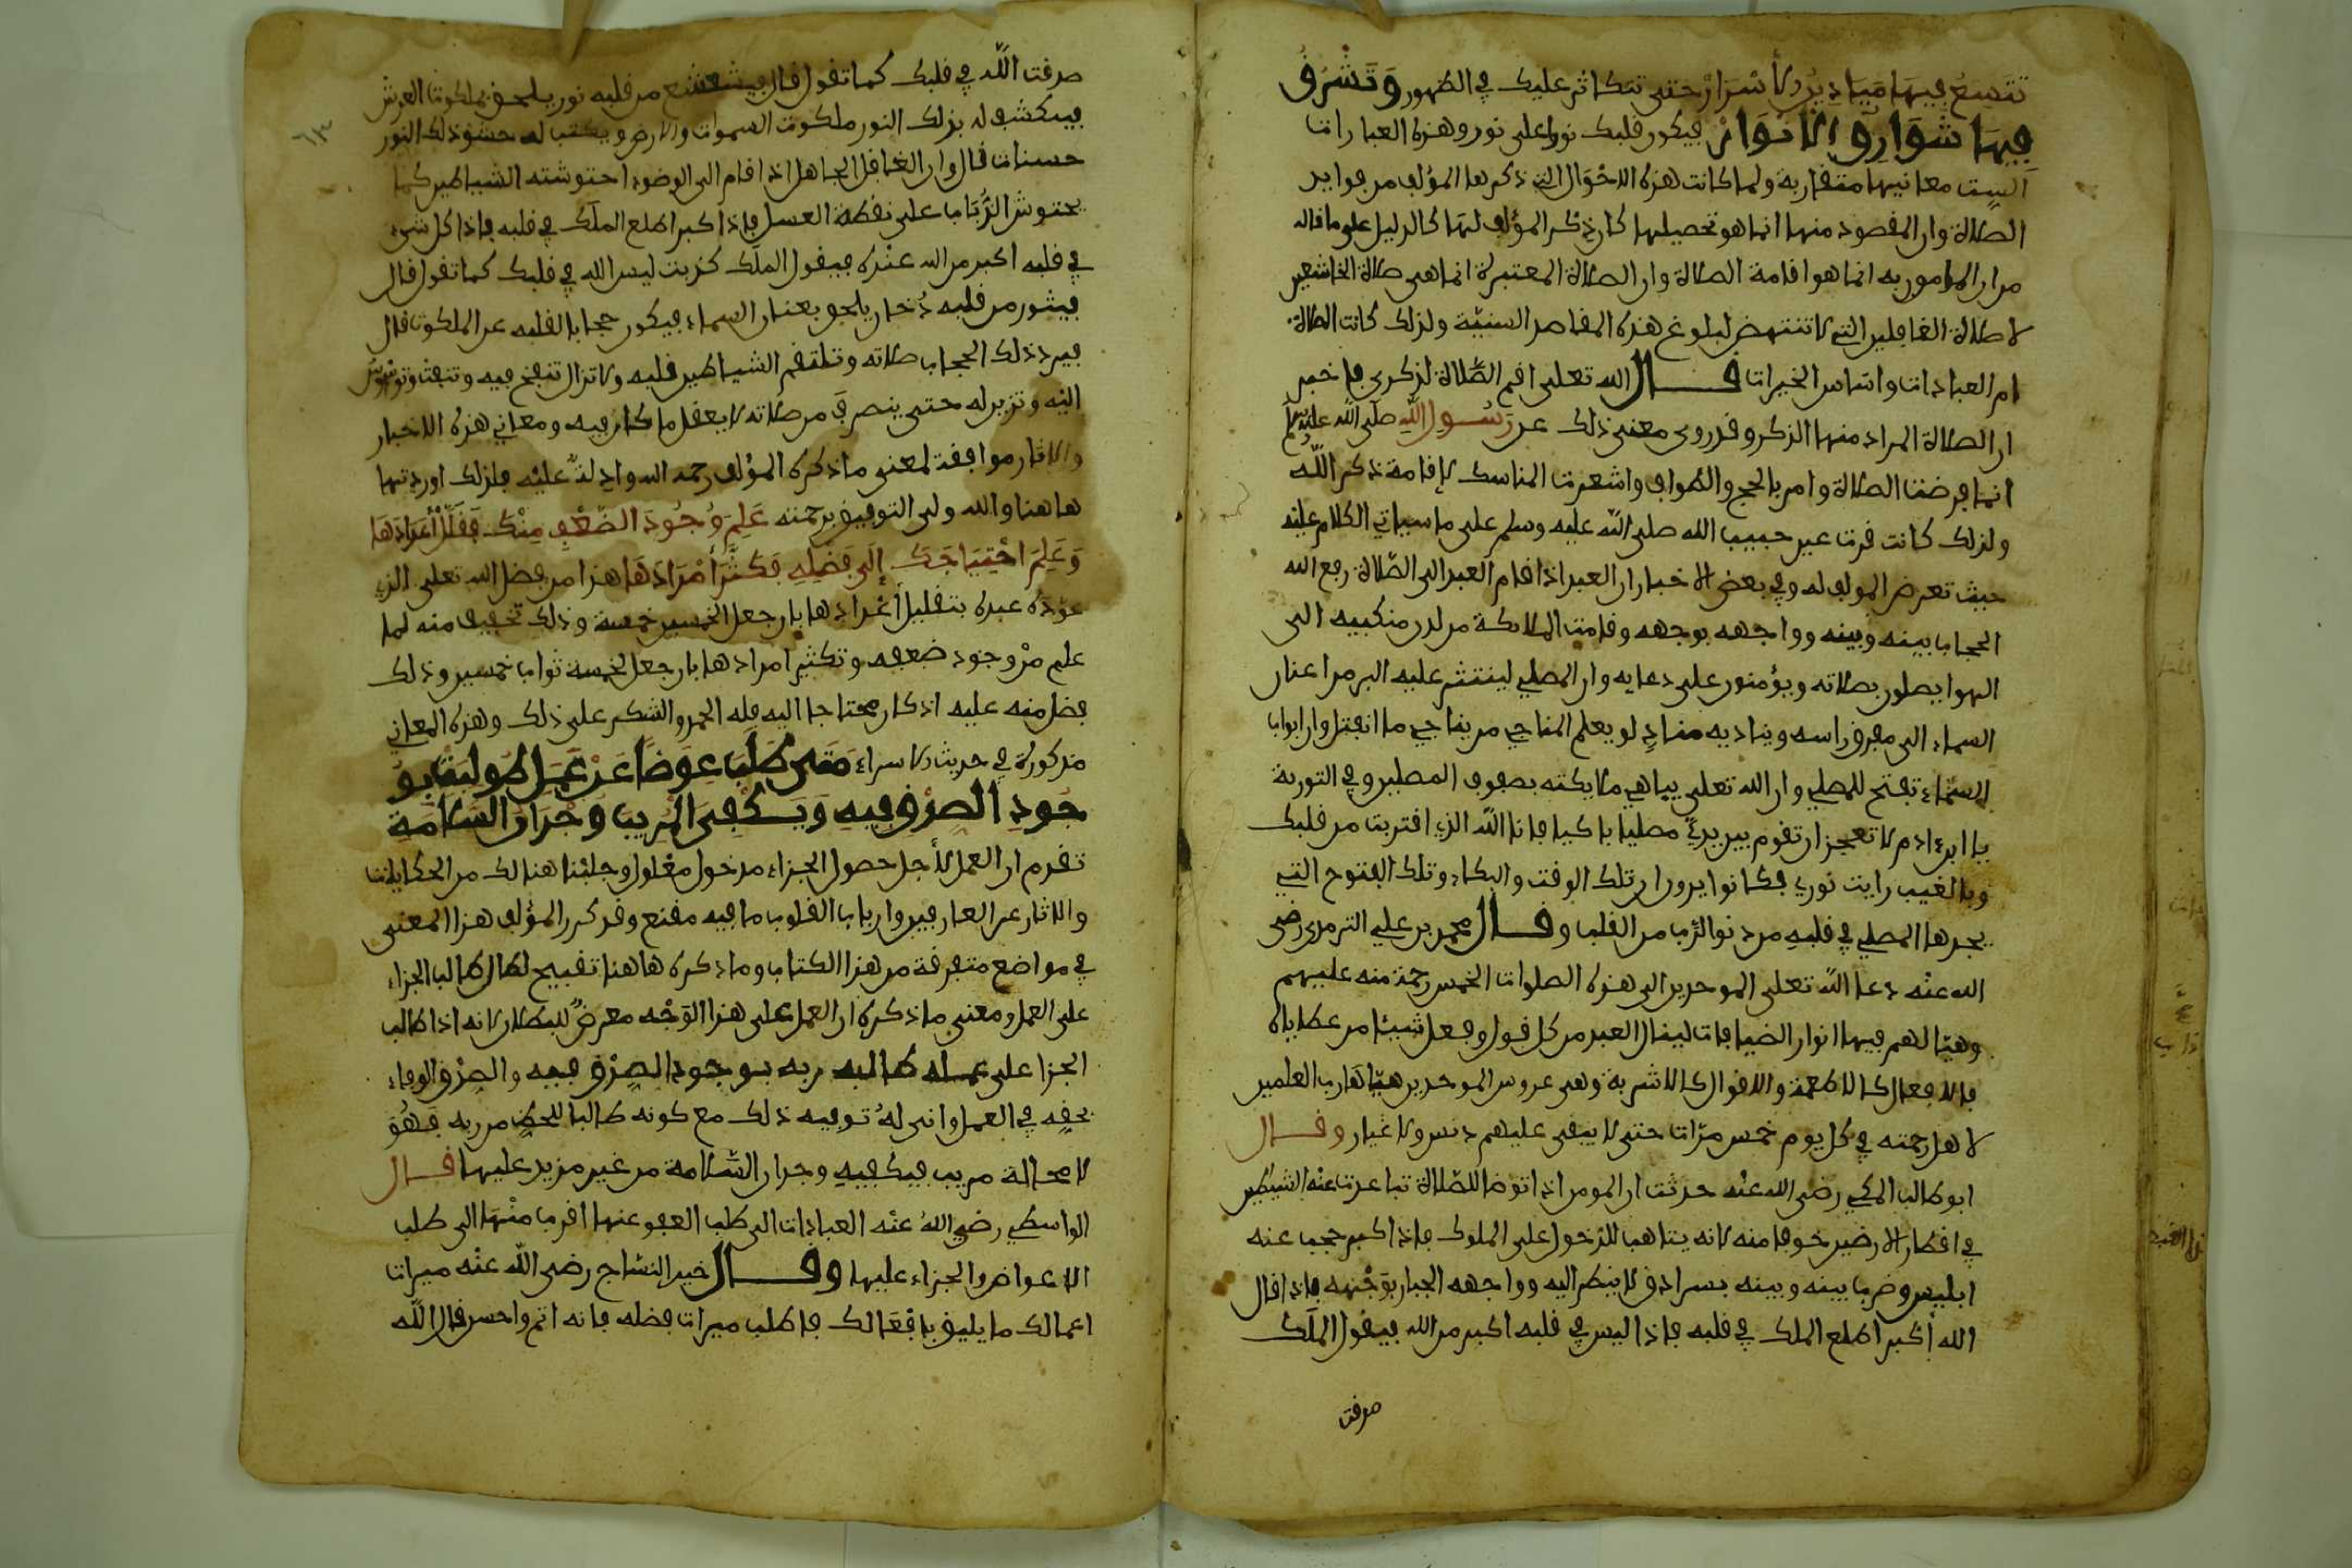 تتسع فيها ميادين الأسرار حتى تتكاثر عليك في الظهور وتشرق
فيها شوارق الأنوار فيكون قلبك نورا على نور وهذه العبارات
الست معانيها متقاربة ولما كانت هذه الاحوال التي ذكرها المؤلف من فوايد
الصلاة وان المقصود منها انما هو تحصيلها كان ذكر المؤلف لها كالدليل على ما قاله
من ان المامور به انما هو اقامة الصلاة وان الصلاة المعتبرة انما هي صلاة الخاشعين
لا صلاة الغافلين التي لا تنتهض لبلوغ هذه المقاصد السنية ولذلك كانت الصلاة
ام العبادات واساس الخيرات قال الله تعلى اقم الصلاة لذكرى فاخبر
ان الصلاة المراد منها الذكر وقد روى معنى ذلك عن رسول الله صلى الله عليه وسلم
انما فرضت الصلاة وامر بالحج والطواف واشعرت المناسك لاقامة ذكر الله
ولذلك كانت قرت عين حبيب الله صلى الله عليه وسلم على ما سياتي الكلام عليه
حيث تعرض المولف له وفي بعض الاخبار ان العبد اذا قام العبد الى الصلاة رفع الله
الحجاب بينه وبينه وواجهه بوجهه وقامت الملايكة من لدن منكبيه الى
الهوا يصلون بصلاته ويؤمنون على دعايه وان المصلي لينتثر عليه البر من اعنان
السماء الى مفرق راسه ويناديه مناد لو يعلم المناجي من يناجي ما انفتل وان ابواب
السماء تفتح للمصلي وان الله تعلى يباهي ملايكته بصفوف المصلين وفي التورية
يا ابن ادم لا تعجز ان تقوم بين يدي مصليا باكيا فانا الله الذي اقتربت من قلبك
وبالغيب رايت نوري فكانوا يرون ان تلك الوقت والبكاء وتلك الفتوح التي
يجدها المصلي في قلبه من دنو الرب من القلب وقال محمد بن علي الترمذي رضى
الله عنه دعا الله تعلى الموحدين الى هذه الصلوات الخمس رحمة منه عليهم
وهيا لهم فيها انوار الضيافات لينال العبد من كل قول وفعل شيئا من عطاياه
فالافعال كالاطعمة والاقوال كالاشربة وهى عروس الموحدين هياها رب العلمين
لاهل رحمته في كل يوم خمس مرات حتى لا يبقى عليهم دنس ولا غبار وقال
ابو طالب المكي رضى الله عنه حدثت ان المومن اذا توضا للصلاة تباعدت عنه الشيطين
في اقطار الارضين خوفا منه لانه يتاهب للدخول على الملوك فاذا كبر حجب عنه
ابليس وضرب بينه وبينه بسرادق لا ينظر اليه وواجهه الجبار بوجهه فاذا قال
الله أكبر اطلع الملك في قلبه فاذا ليس في قلبه اكبر من الله فيقول الملك
صدقت
صدقت الله في قلبك كما تقول قال فيشعشع من قلبه نور يلحق بملكوت العرش
فيكشف له بذلك النور ملكوت السموات والارض ويكتب له حشو ذلك النور
حسنات قال وان الغافل الجاهل اذا قام الى الوضوء احتوشته الشياطين كما
يحتوش الذباب على نقطة العسل فاذا كبر اطلع الملك في قلبه فاذا كل شيء
في قلبه اكبر من الله عنده فيقول الملك كذبت ليس الله في قلبك كما تقول قال
فيثور من قلبه دخان يلحق بعنان السماء فيكون حجابا لقلبه عن الملكوت قال
فيرد ذلك الحجاب صلاته وتلتقم الشياطين قلبه ولا تزال تنفخ فيه وتنفث وتوسوس
اليه وتزين له حتى ينصرف من صلاته لا يعقل ما كان فيه ومعاني هذه الاخبار
والاثار موافقة لمعنى ما ذكره المؤلف رحمه الله وادلة عليه فلذلك اوردتها
هاهنا والله ولى التوفيق برحمته علم وجود الضعف منك فقلل أعدادها
وعلم احتياجك إلى فضله فكثر أمدادها هذا من فضل الله تعلى الذي
عوده عبده بتقليل أعدادها بان جعل الخمسين خمسة وذلك تخفيف منه لما
علم من وجود ضعفه وتكثير امدادها بان جعل لخمسة ثواب خمسين وذلك
فضل منه عليه اذ كان محتاجا اليه فله الحمد والشكر على ذلك وهذه المعاني
مذكورة في حديث الاسراء متى طلبت عوضا عن عمل طولبت بو
جود الصدق فيه ويكفى المريب وجدان السلامة
تقدم ان العمل لأجل حصول الجزاء مدخول معلول وجلبنا هنالك من الحكايات
والاثار عن العارفين وارباب القلوب ما فيه مقنع وقد كرر المؤلف هذا المعنى
في مواضع متفرقة من هذا الكتاب وما ذكره هاهنا تقبيح لحال طالب الجزاء
على العمل ومعنى ما ذكره ان العمل على هذا الوجه معرض للبطلان لانه اذا طالب
الجزا على عمله طالبه ربه بوجود الصدق فيه والصدق الوفاء
بحقه في العمل وانى له توفيه ذلك مع كونه طالبا للحض من ربه فهو
لا محالة مريب فيكفيه وجدان السلامة من غير مزيد عليها قال
الواسطي رضي الله عنه العبادات الى طلب العفو عنها اقرب منها الى طلب
الاعواض والجزاء عليها وقال خير النساج رضى الله عنه ميراث
اعمالك ما يليق بافعالك فاطلب ميراث فضله فانه اتم واحسن قال الله